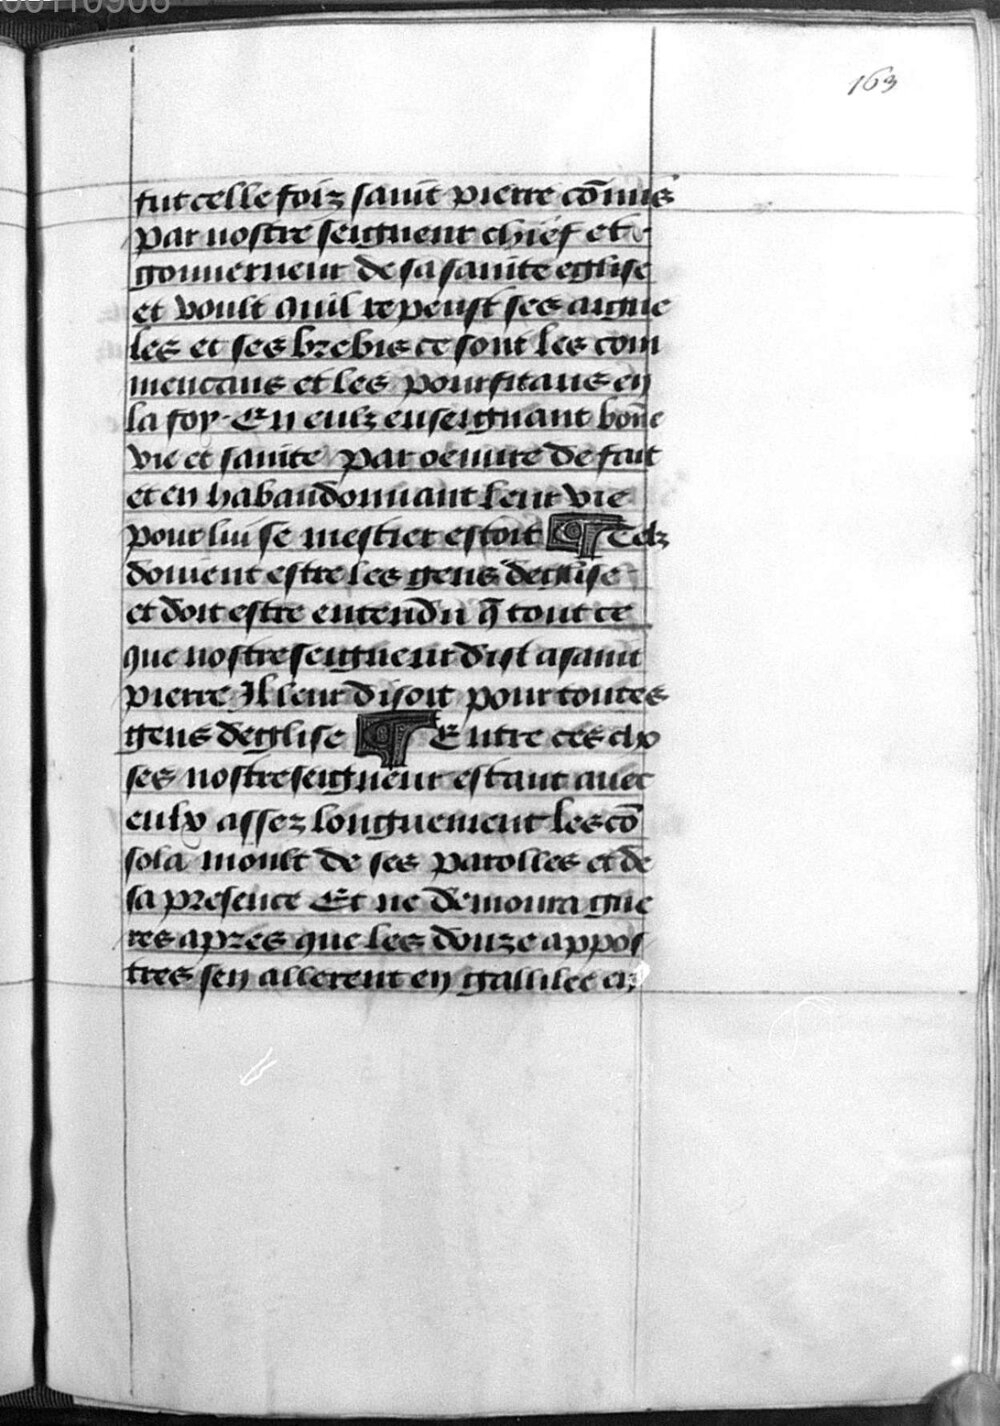 163
fut celle foiz saint pierre cōmis
par nostre seigneur chief et
gouverneur de sa sainte eglise
et voult quil repeust ses aigne
les et ses brebis ce sont les com
mencans et les pourfitans en
la foy. En eulz enseignant bōne
vie et sainte par oeuvre de fait
et en habandonnant leur vie
pour lui se mestier estoit ¶ Telz
doivent estre les gens deglise
et doit estre entendu q̄ tout ce
que nostre seigneur dist a saint
pierre Il leur disoit pour toutes
gens deglise ¶ Entre ces cho
ses nostre seigneur estant avec
eulx assez longuement les cō
sola moult de ses parolles et de
sa presence Et ne demoura gue
res apres que les douze appos
tres sen allerent en gallilee en